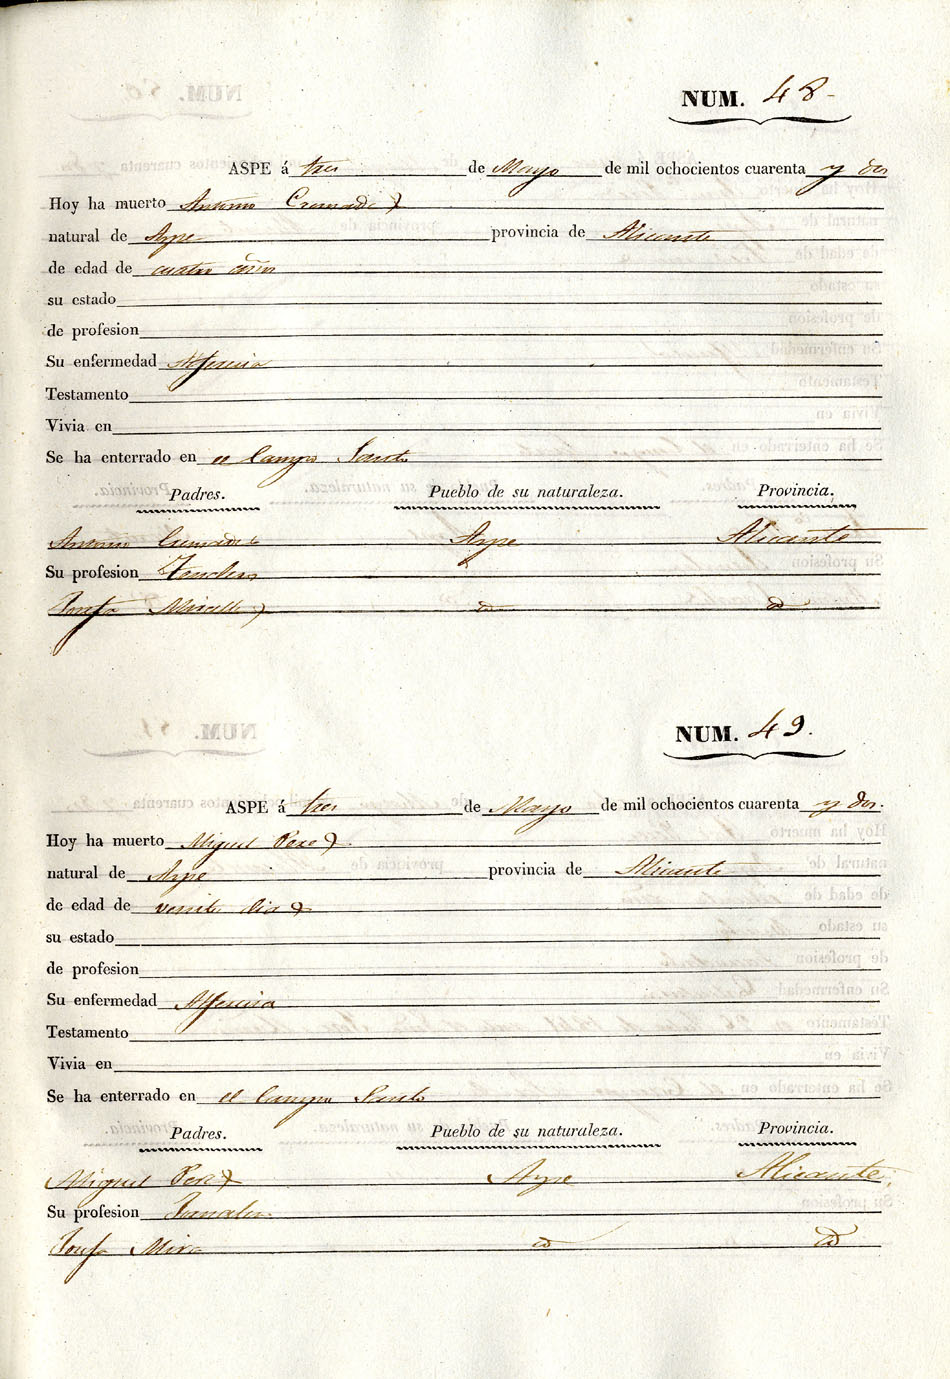 NUM. 48
ASPE á tres de Mayo de mil ochocientos cuarenta y dos
Hoy ha muerto Antonio Cremades
natural de Aspe provincia de Alicante
de edad de cuatro años
su estado
de profesion
Su enfermedad Alferecia
Testamento
Vivia en
Se ha enterrado en el Campo Santo
Padres. Pueblo de su naturaleza. Provincia.
Antonio Cremades Aspe Alicante
Su profesion Tendero
Josefa Miralles id id
NUM. 49.
ASPE á tres de Mayo de mil ochocientos cuarenta y dos.
Hoy ha muerto Miguel Perez
natural de Aspe provincia de Alicante
de edad de veinte dias
su estado
de profesion
Su enfermedad Alferecia
Testamento
Vivia en
Se ha enterrado en el Campo Santo
Padres. Pueblo de su naturaleza. Provincia.
Miguel Perez Aspe Alicante
Su profesion Jornalero
Josefa Mira id id